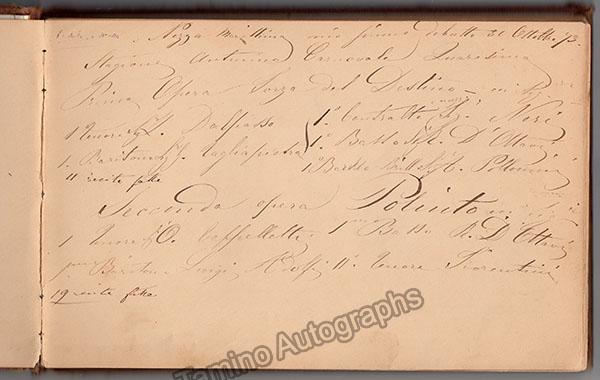 Nizza Marittima mio primo debutto 20 Ottobre 73.
Stagione Autunno Carnevale Quaresima
Prima Opera Forza del Destino
1 Tenore Sg. J. Dalpasso
1° Contralto Sg. Nori
1. Baritono Sg. J. Tagliapietra
1° Basso Sg. R. D'Ottavi
11 recite fatte
1° Basso Brill. Sg. C.
Seconda opera Poliuto
1 Tenore Sg. C. Cappelletti
1mo Basso R. D'Ottavi
primo Bariton Luigi
11° Tenore Fiorentini
19 recite fatte
Tamino Autographs